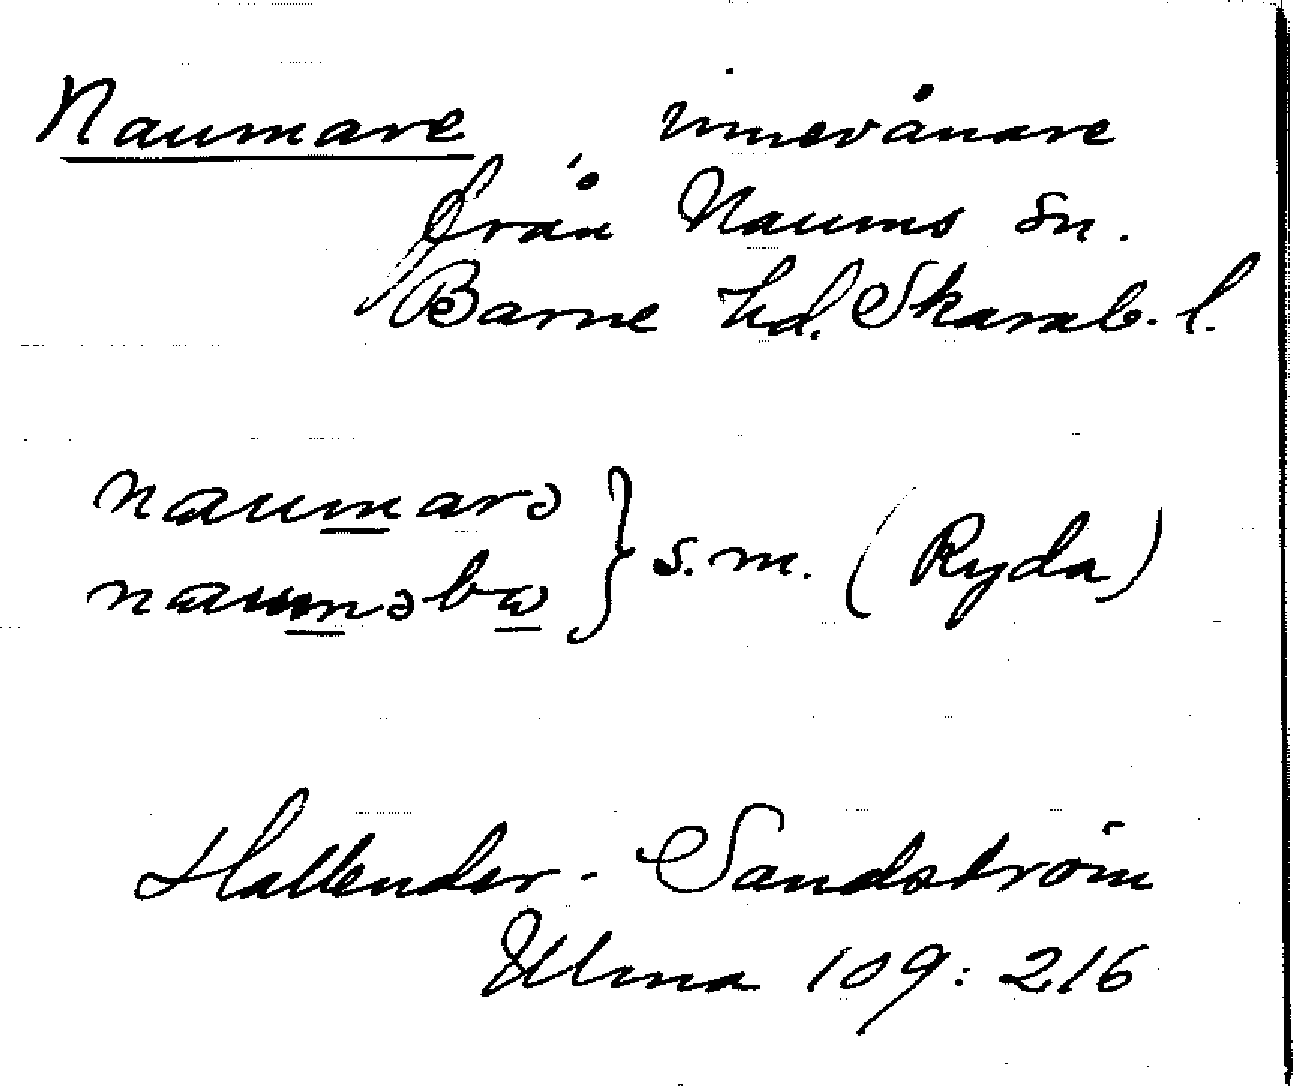 Naumare innevånare
från Naums sn.
Barne hd. Skarab. l.
naumarə } s. m. (Ryda)
naumsbo
Hallender - Sandström
Ulma 109: 216